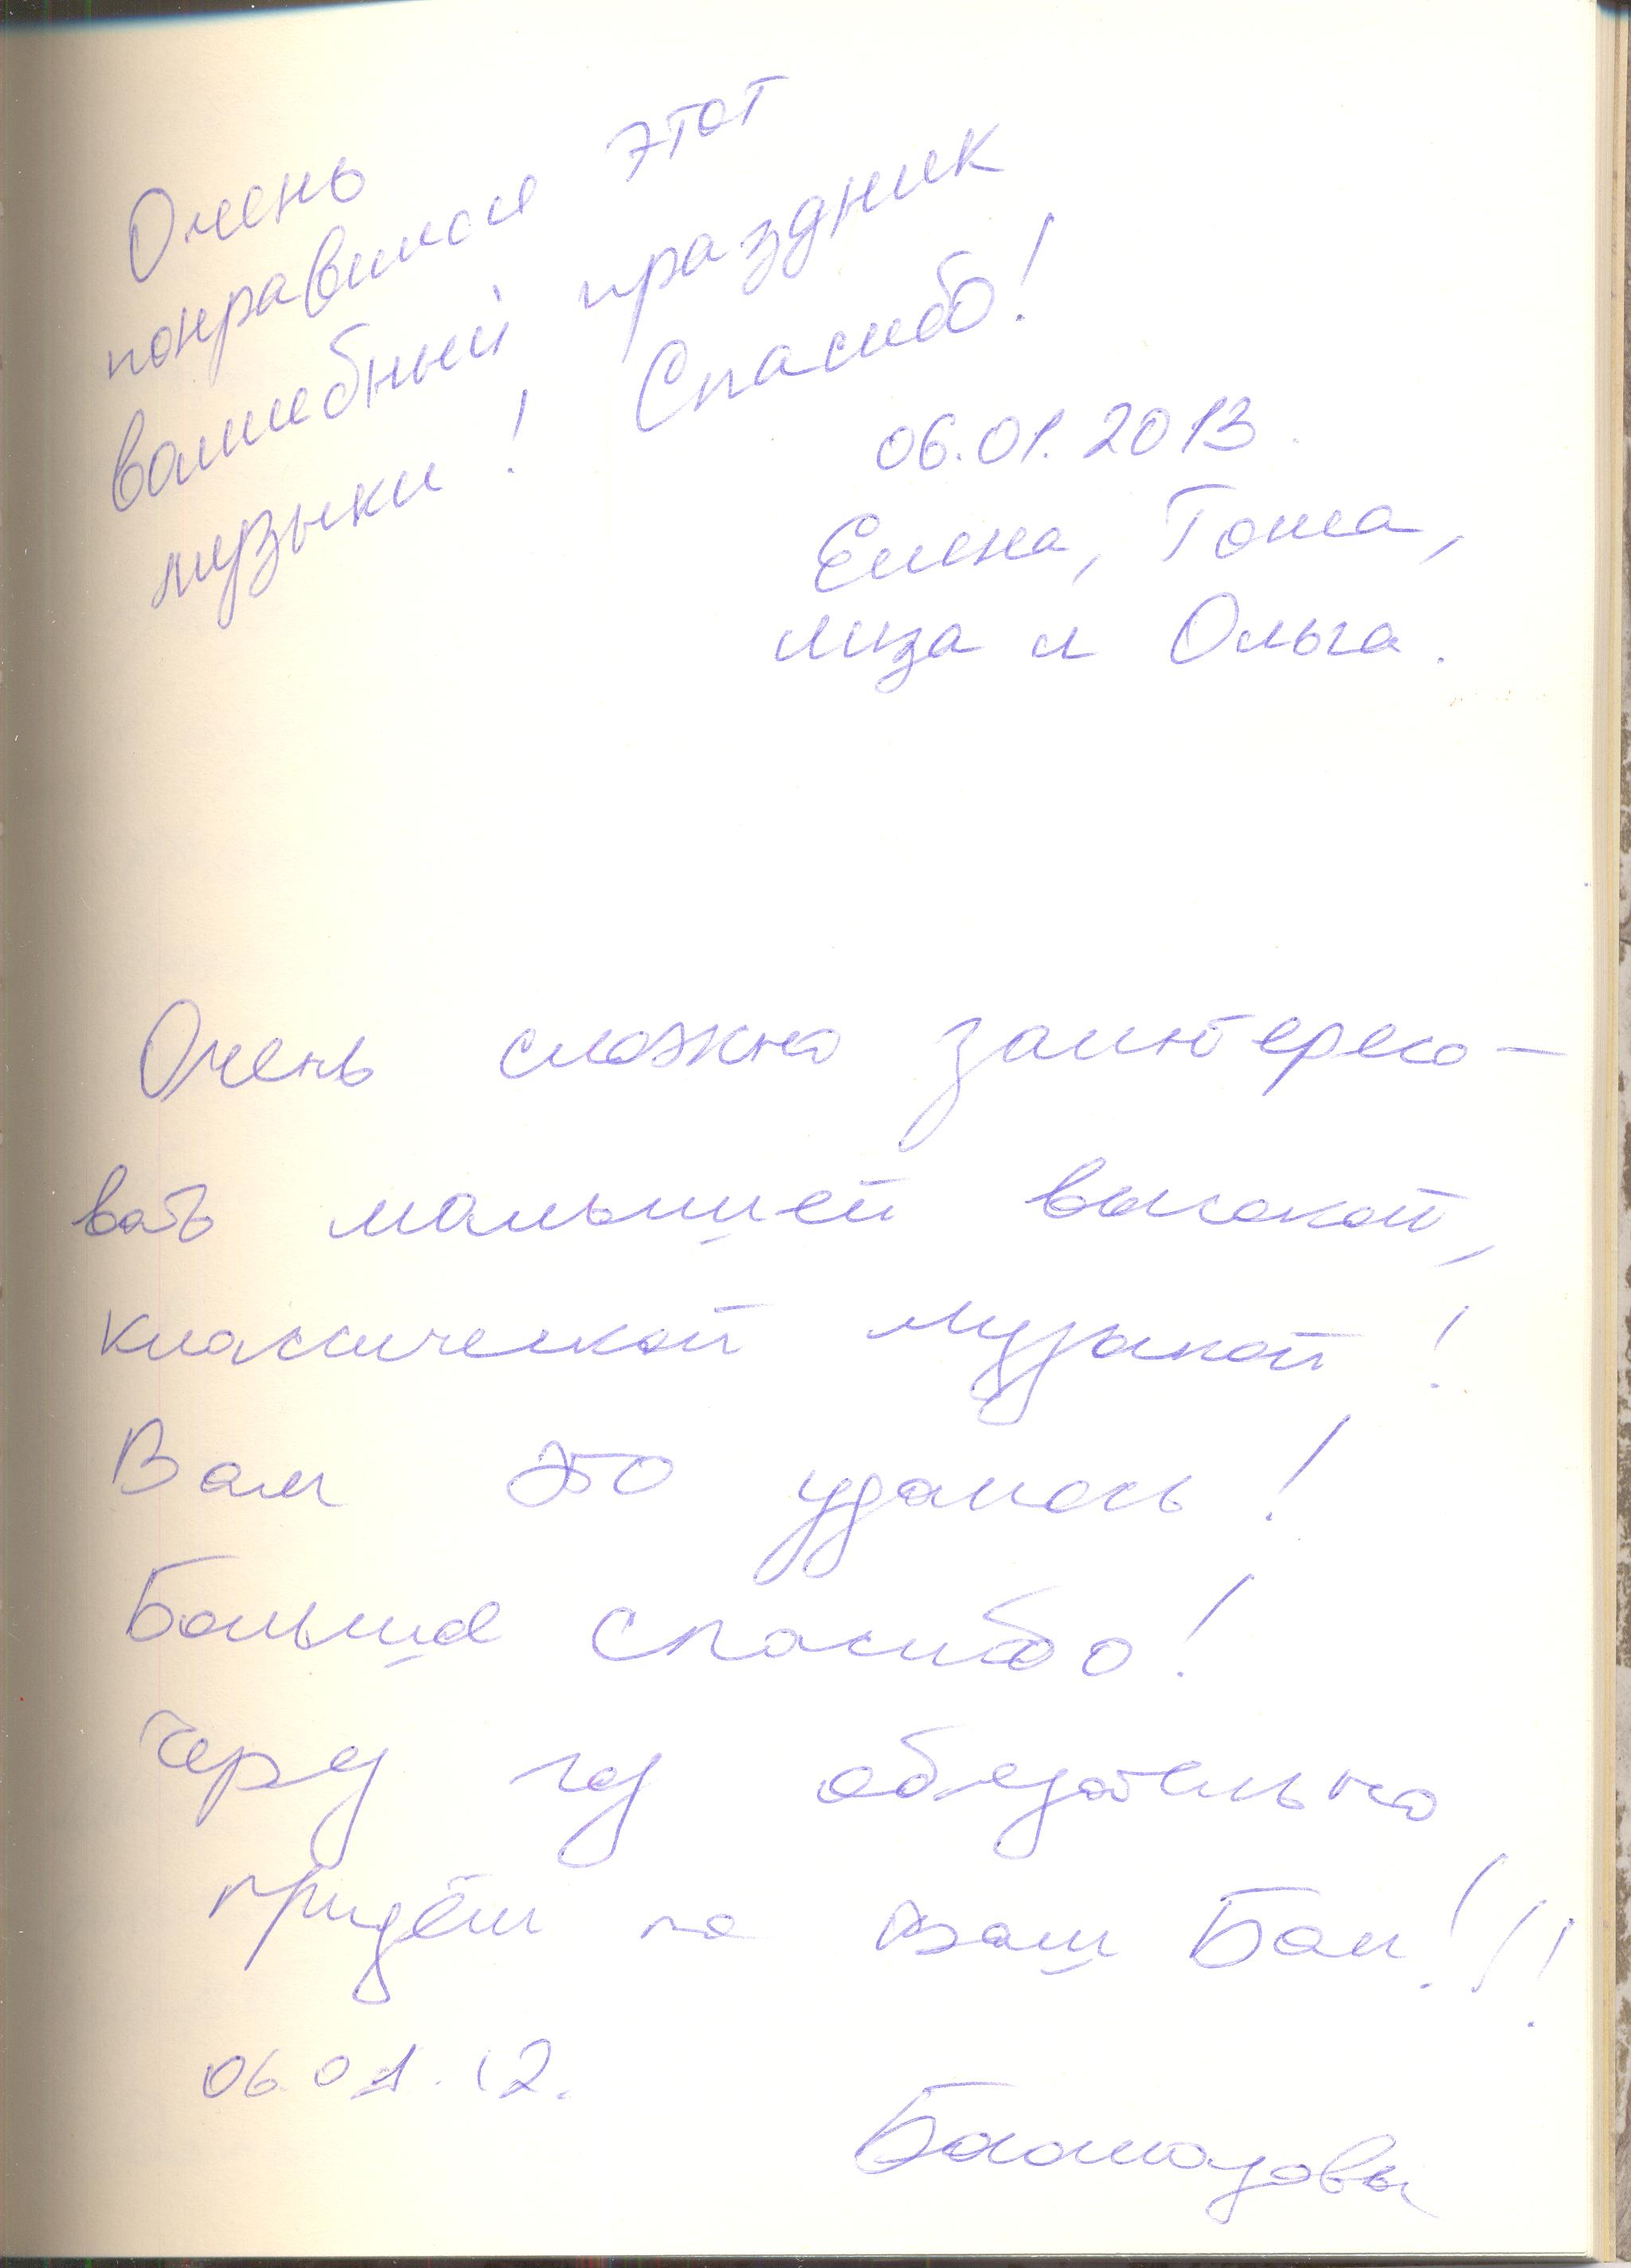 Очень
понравился этот
волшебный праздник
музыки! Спасибо!
06.01.2013.
Елена, Гоша,
Лиза и Ольга.
Очень сложно заинтересо-
вать малышей высокой,
классической музыкой!
Вам это удалось!
Большое спасибо!
Через год обязательно
придём на Ваш Бал!!!
06.01.12.